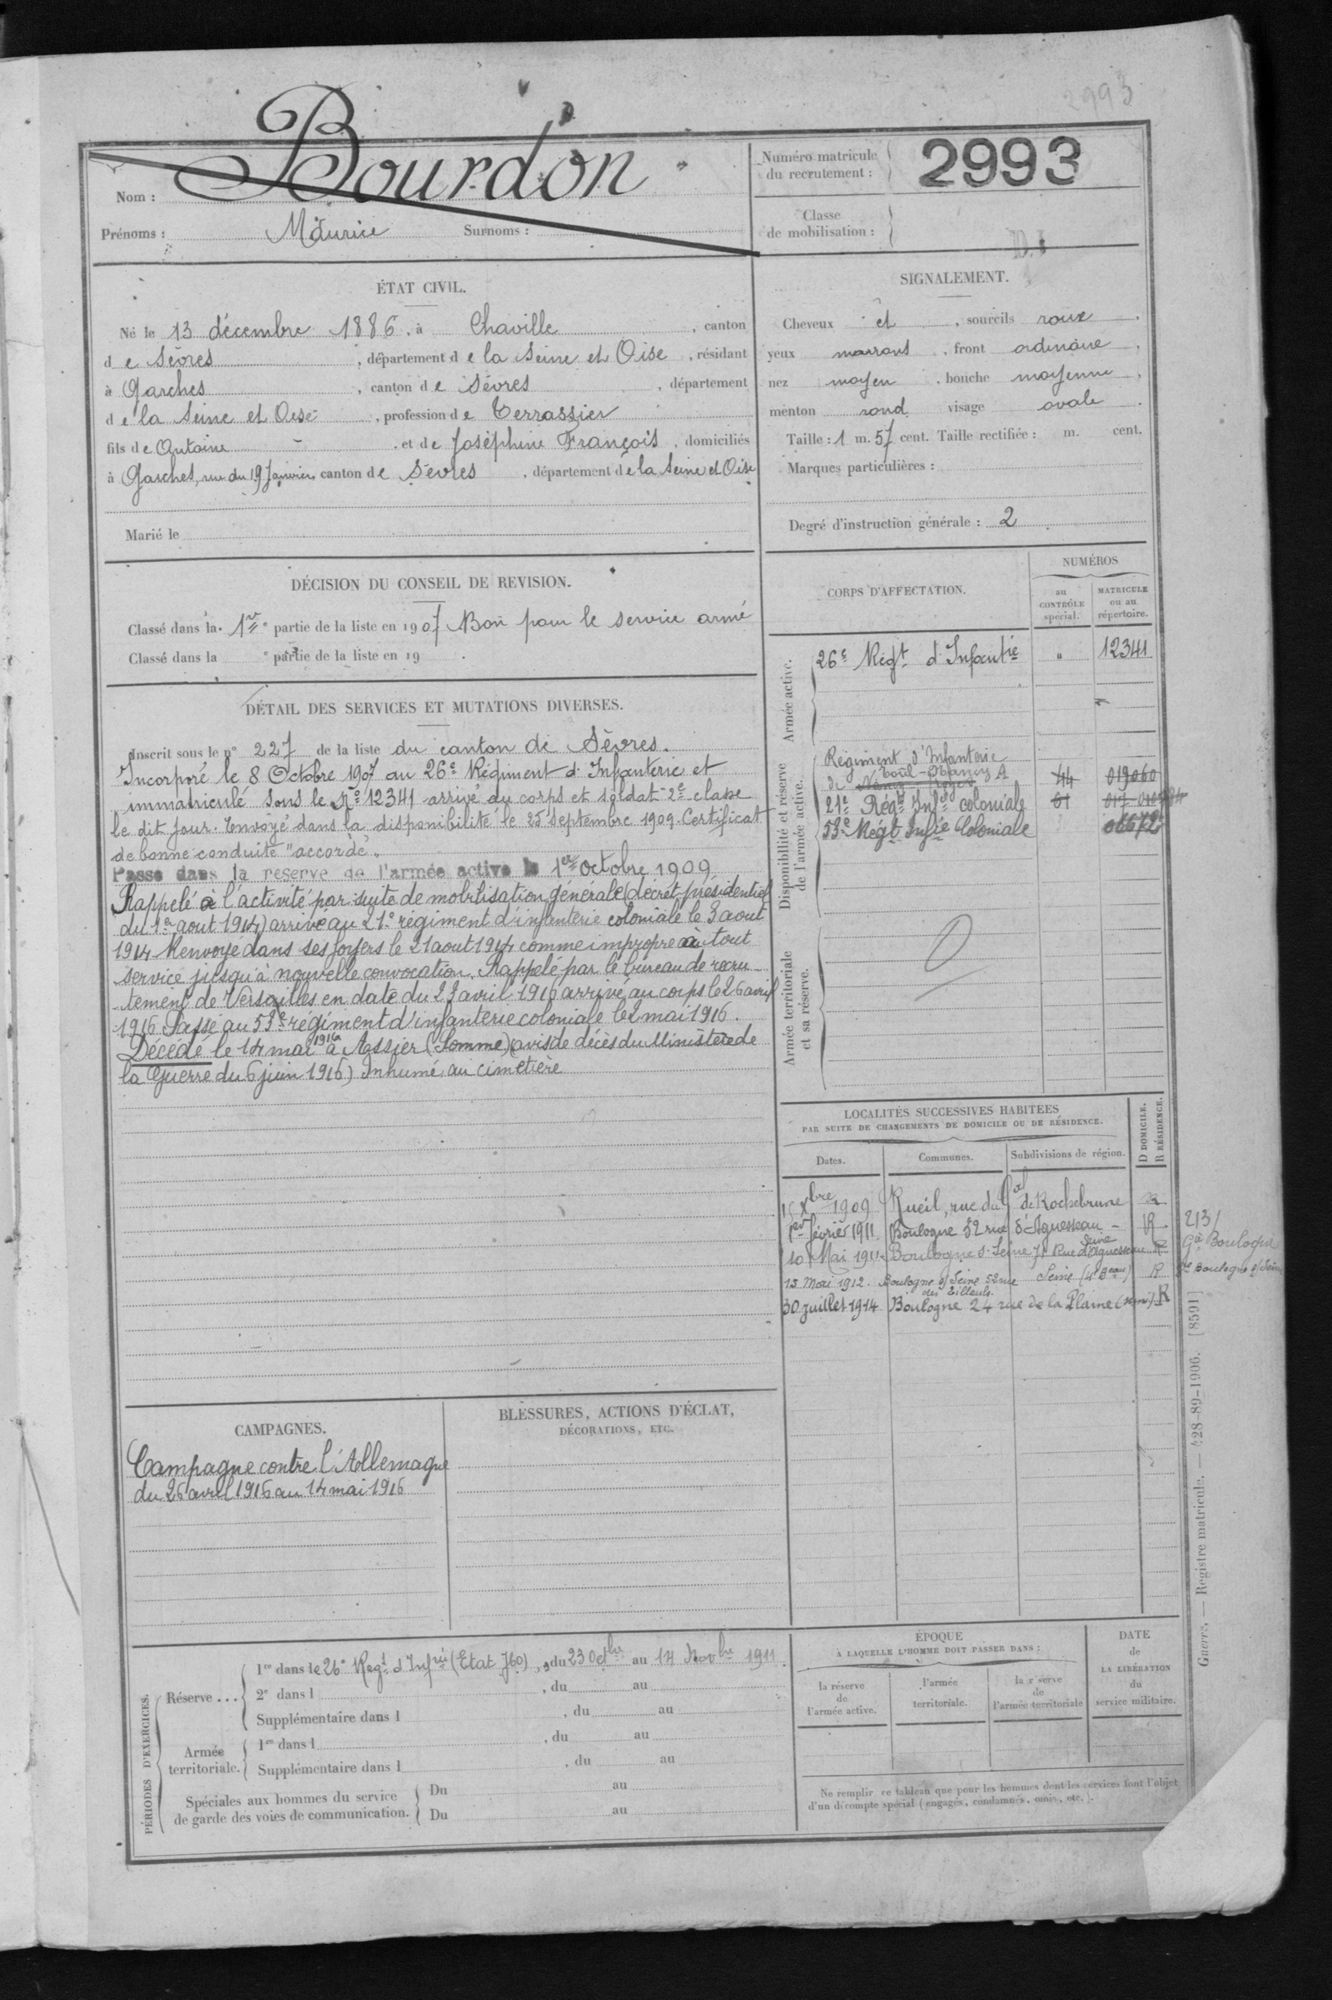 2993
Nom : Bourdon
Prénoms : Maurice Surnoms :
Numéro matricule du recrutement : 2993
Classe de mobilisation :
ÉTAT CIVIL.
Né le 13 décembre 1886, à Chaville, canton
de Sèvres, département de la Seine et Oise, résidant
à Garches, canton de Sèvres, département
de la Seine et Oise, profession de Terrassier
fils de Antoine et de Joséphine François, domiciliés
à Garches, rue du 19 Janvier, canton de Sèvres, département de la Seine et Oise
Marié le
SIGNALEMENT.
Cheveux et, sourcils roux,
yeux marrons, front ordinaire,
nez moyen, bouche moyenne,
menton rond visage ovale.
Taille : 1 m. 57 cent. Taille rectifiée : m. cent.
Marques particulières :
Degré d'instruction générale : 2
DÉCISION DU CONSEIL DE REVISION.
Classé dans la 1re partie de la liste en 1907 Bon pour le service armé
Classé dans la e partie de la liste en 19 .
DÉTAIL DES SERVICES ET MUTATIONS DIVERSES.
Inscrit sous le n° 227 de la liste du canton de Sèvres.
Incorporé le 8 Octobre 1907 au 26e Régiment d'Infanterie et
immatriculé sous le No 12341 arrivé au corps et soldat 2e classe
le dit jour. Envoyé dans la disponibilité le 25 septembre 1909. Certificat
de bonne conduite "accordé".
Passé dans la réserve de l'armée active le 1er octobre 1909
Rappelé à l'activité par suite de mobilisation générale (décret présidentiel
du 1er aout 1914) arrivé au 21e régiment d'infanterie coloniale le 3 aout
1914 Renvoyé dans ses foyers le 21 aout 1914 comme impropre à tout
service jusqu'à nouvelle convocation. Rappelé par le bureau de recru-
tement de Versailles en date du 23 avril 1916 arrivé au corps le 26 avril
1916 Passé au 53e régiment d'infanterie coloniale le 2 mai 1916.
Décédé le 14 mai 1916 à Assier (Somme) (avis de décès du Ministère de
la Guerre du 6 juin 1916) Inhumé au cimetière
CORPS D'AFFECTATION.
NUMÉROS
au CONTRÔLE spécial.
MATRICULE ou au répertoire.
Armée active.
26e Régt d'Infantie " 12341
Disponibilité et réserve de l'armée active.
Régiment d'Infanterie
de Toul-Nancy A 44 019060
21e Régt Infie coloniale 61
53e Régt Infie Coloniale
Armée territoriale et sa réserve.
LOCALITÉS SUCCESSIVES HABITÉES
PAR SUITE DE CHANGEMENTS DE DOMICILE OU DE RÉSIDENCE.
Dates. Communes. Subdivisions de région. D DOMICILE. R RÉSIDENCE.
Xbre 1909 Rueil, rue du Cel de Rochebrune R
1er février 1911 Boulogne 52 rue d'Aguesseau - R
10 Mai 1911 Boulogne s. Seine 71 Rue d'Aguesseau Seine R
15 Mai 1912. Boulogne s/ Seine 52 rue des Tilleuls. Seine (4e Beau) R
30 juillet 1914 Boulogne 24 rue de la Plaine (Seine) R
213/
Gie Boulogne
Gie Boulogne s/ Seine
CAMPAGNES.
Campagne contre l'Allemagne
du 26 avril 1916 au 14 mai 1916
BLESSURES, ACTIONS D'ÉCLAT,
DÉCORATIONS, ETC.
PÉRIODES D'EXERCICES.
Réserve ...
1re dans le 26e Régt d'Infie (Etat 760), du 23 Octbre au 14 Novbre 1911.
2e dans l , du au
Supplémentaire dans l , du au
Armée territoriale.
1re dans l , du au
Supplémentaire dans l , du au
Spéciales aux hommes du service
de garde des voies de communication.
Du au
Du au
ÉPOQUE
À LAQUELLE L'HOMME DOIT PASSER DANS :
la réserve de l'armée active.
l'armée territoriale.
la réserve de l'armée territoriale
DATE de LA LIBÉRATION du service militaire.
Ne remplir ce tableau que pour les hommes dont les services font l'objet
d'un décompte spécial (engagés, condamnés, omis, etc.).
Guerre. — Registre matricule. — 428-89-1906. [8591]